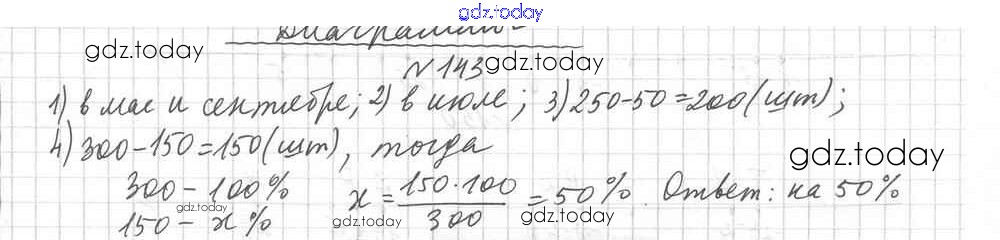 gdz.today
Диаграммы
gdz.today
№ 143 gdz.today
1) в мае и сентябре; 2) в июле; 3) 250-50=200(шт);
4) 300-150=150(шт), тогда
gdz.today
300 - 100%
150 - x %
gdz.today
x = 150·100 / 300 = 50%. Ответ: на 50%
gdz.today
gdz.today